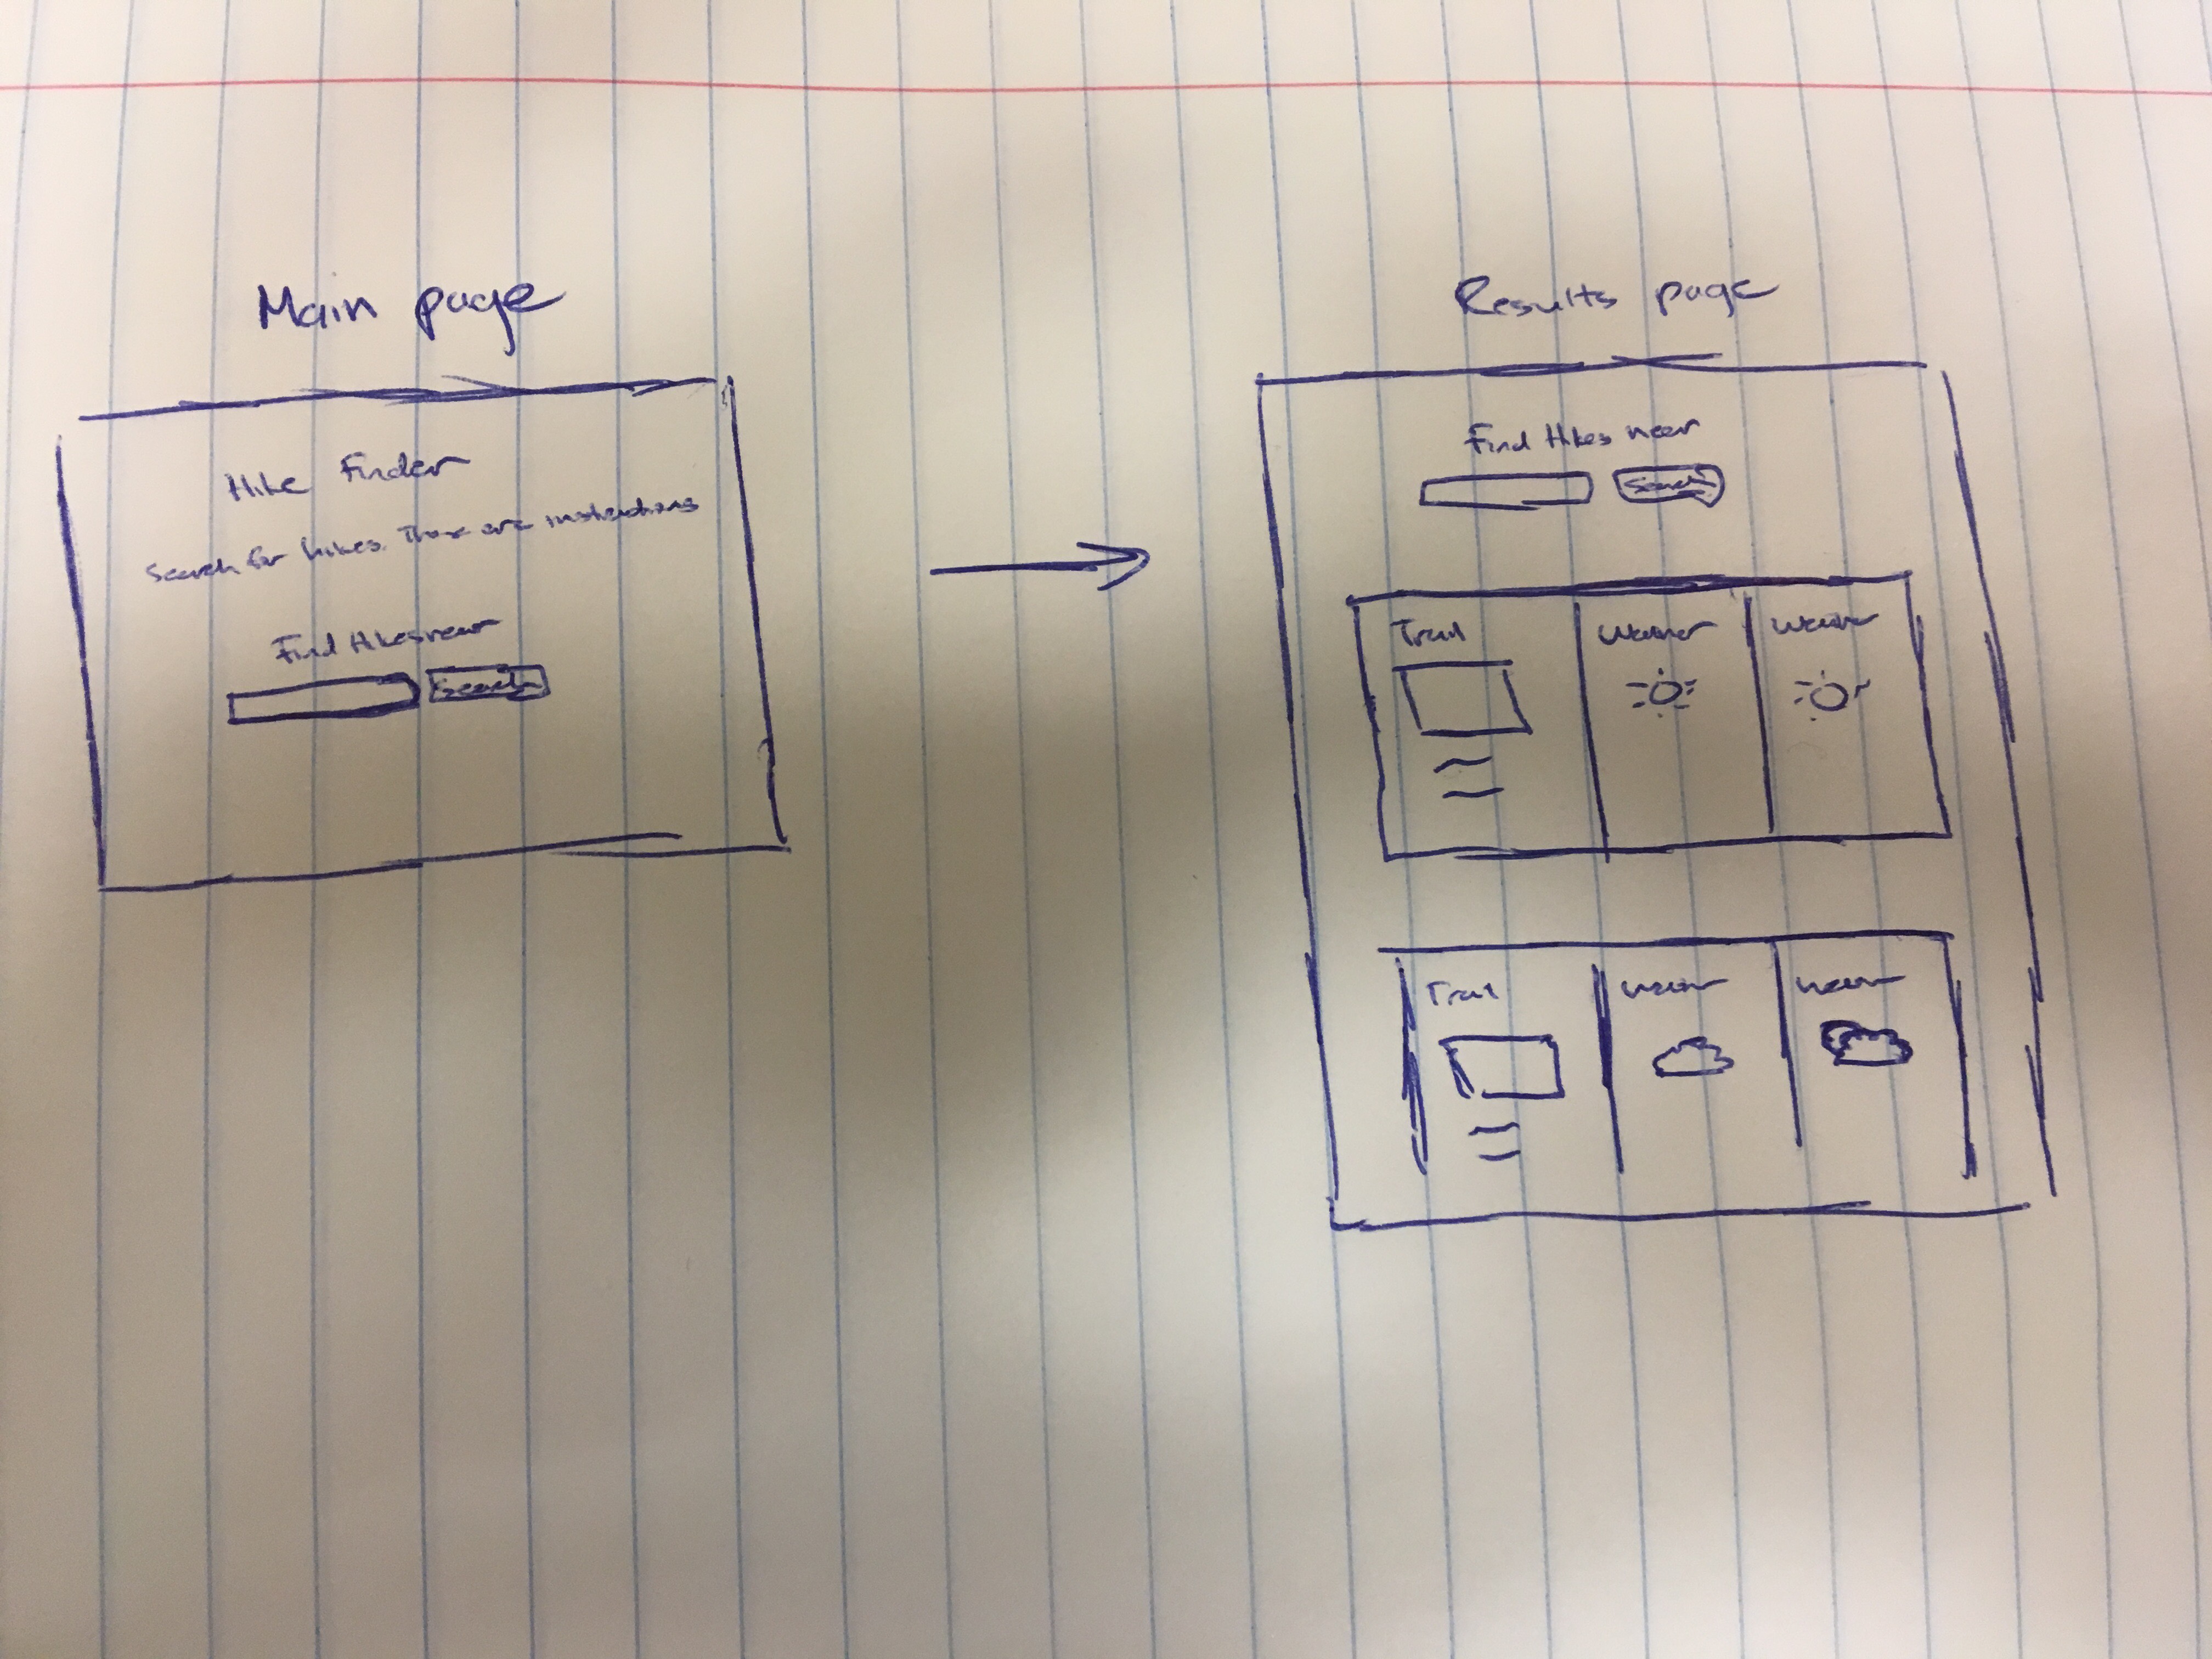 Main page
Hike Finder
Search for hikes. These are instructions
Find Hikes near
Search
Results page
Find Hikes near
Search
Trail Weather Weather
Trail Weather Weather